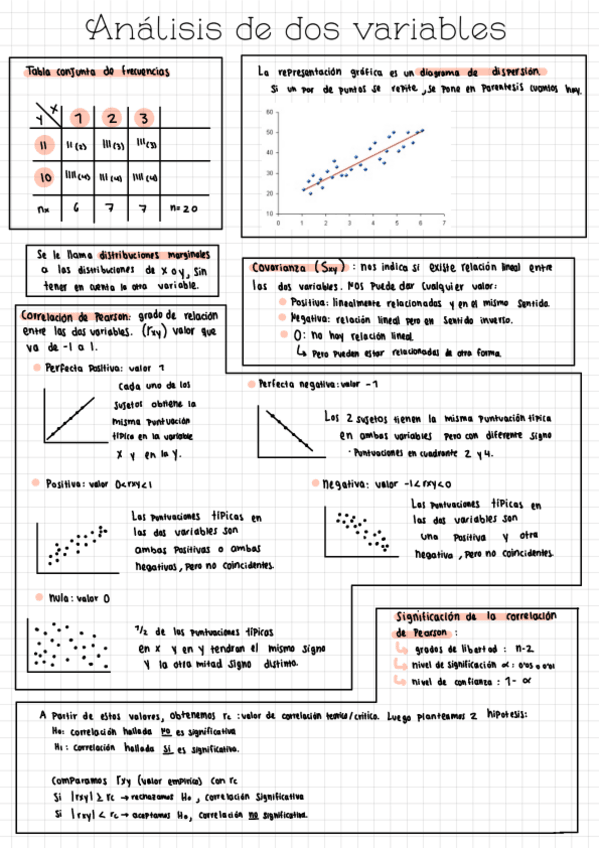 Análisis de dos variables
Tabla conjunta de frecuencias
X
Y
1 2 3
11 II(2) III(3) III(3)
10 IIII(4) IIII(4) IIII(4)
nx 6 7 7 n=20
La representación gráfica es un diagrama de dispersión.
Si un par de puntos se repite, se pone en parentesis cuantos hay.
60
50
40
30
20
10
0 1 2 3 4 5 6 7
Se le llama distribuciones marginales
a las distribuciones de x o y, sin
tener en cuenta la otra variable.
Covarianza (Sxy) : nos indica si existe relación lineal entre
las dos variables. Nos puede dar cualquier valor:
Positiva: linealmente relacionados y en el mismo sentido.
Negativa: relación lineal pero en sentido inverso.
0: no hay relación lineal
↳ Pero pueden estar relacionadas de otra forma.
Correlación de Pearson: grado de relación
entre las dos variables. (rxy) valor que
va de -1 a 1.
Perfecta Positiva: valor 1
Cada uno de los
sujetos obtiene la
misma puntuación
típica en la variable
X y en la y.
Perfecta negativa: valor -1
Los 2 sujetos tienen la misma puntuación típica
en ambas variables pero con diferente signo
· Puntuaciones en cuadrante 2 y 4.
Positiva: valor 0<rxy<1
Las puntuaciones típicas en
las dos variables son
ambas positivas o ambas
negativas, pero no coincidentes.
Negativa: valor -1<rxy<0
Las puntuaciones típicas en
las dos variables son
una positiva y otra
negativa, pero no coincidentes.
nula: valor 0
1/2 de las puntuaciones típicas
en x y en y tendran el mismo signo
y la otra mitad signo distinto.
Significación de la correlación
de Pearson :
↳ grados de libertad : n-2
↳ nivel de significación α: 0'05 o 0'01
↳ nivel de confianza : 1- α
A partir de estos valores, obtenemos rc : valor de correlación teorico/critico. Luego planteamos 2 hipotesis:
H0: correlación hallada no es significativa
H1: correlación hallada si es significativa.
Comparamos rxy (valor empirico) con rc
Si |rxy| ≥ rc → rechazamos H0, correlación significativa
Si |rxy| < rc → aceptamos H0, correlación no significativa.